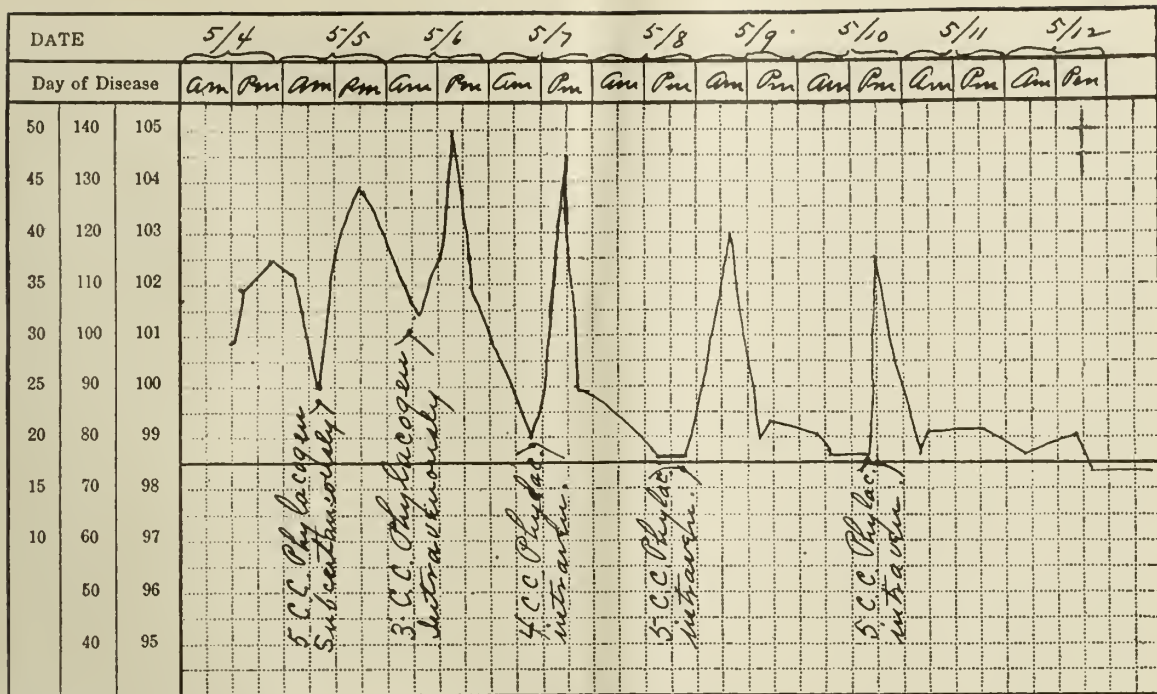 DATE 5/4 5/5 5/6 5/7 5/8 5/9 5/10 5/11 5/12
Day of Disease am Pm am Pm am Pm am Pm am Pm am Pm am Pm am Pm am Pm
50 140 105
45 130 104
40 120 103
35 110 102
30 100 101
25 90 100
20 80 99
15 70 98
10 60 97
50 96
40 95
5 C.C. Phylacogen
Subcutaneously
3 C.C. Phylacogen
Intravenously
4 C.C. Phylac.
intraven.
5 C.C. Phylac.
intraven.
5 C.C. Phylac.
intraven.